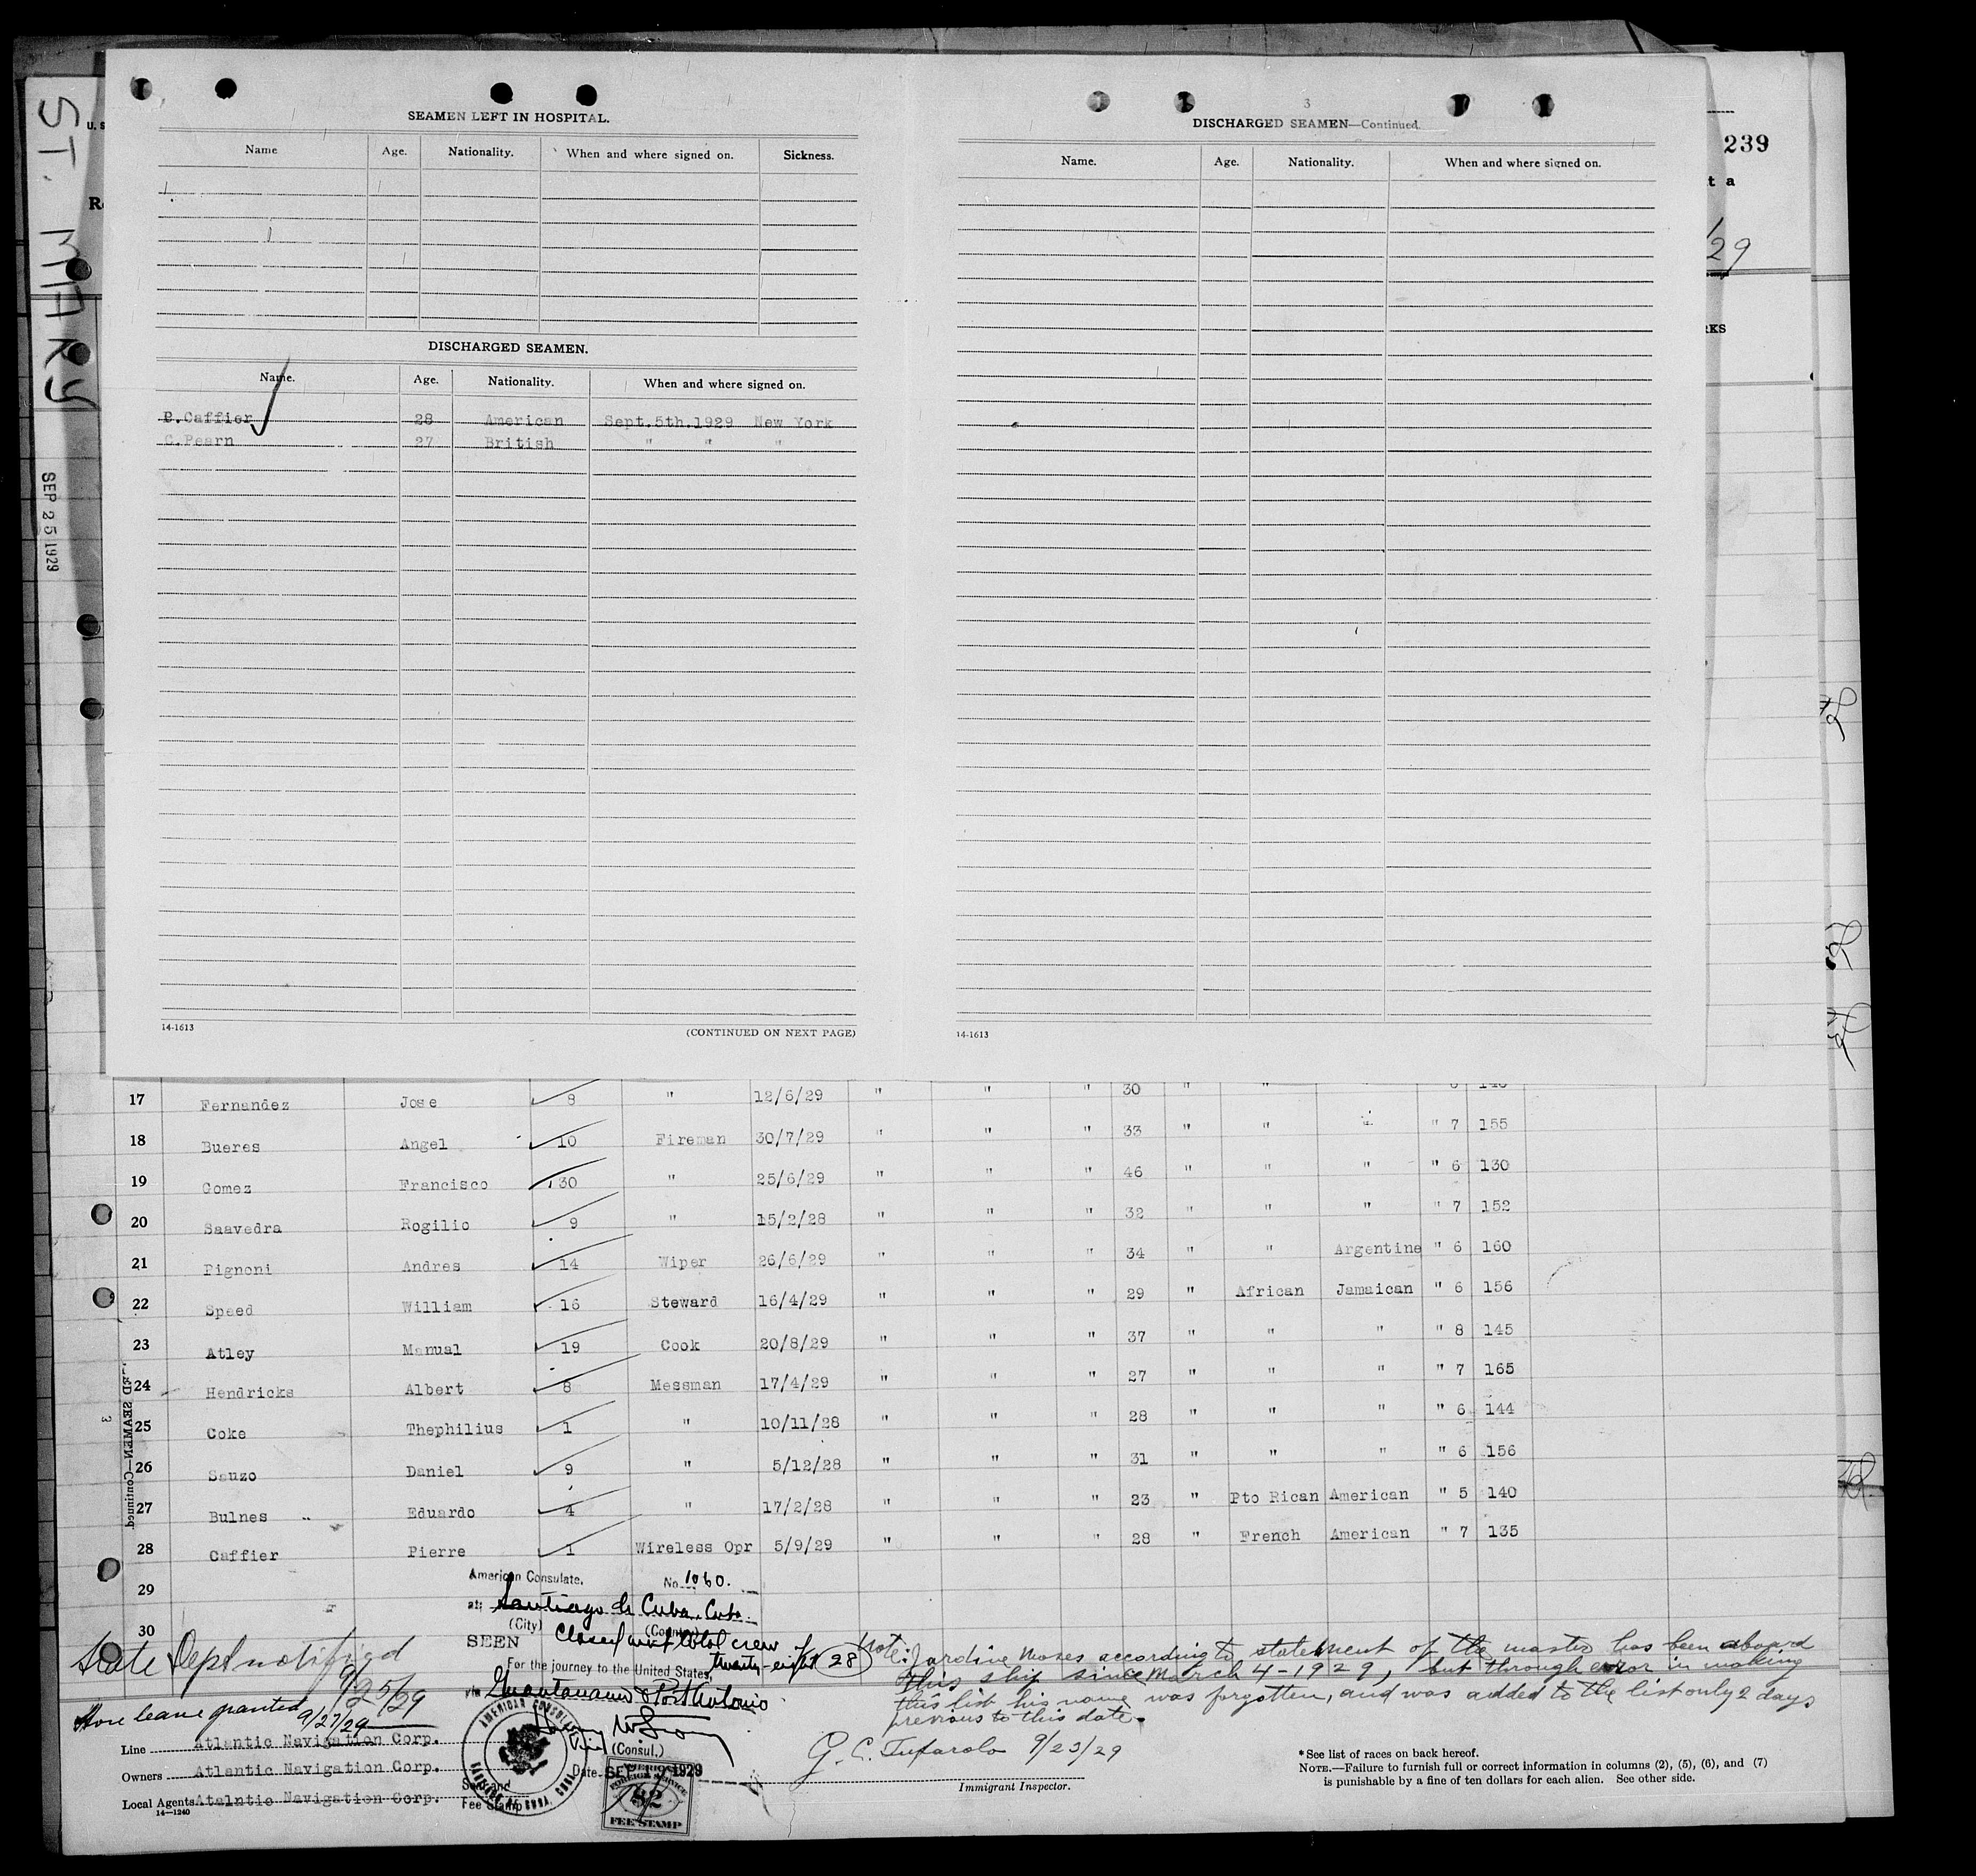 ST. MARY
SEP 25 1929
U. S
239
t a
/29
RKS
SEAMEN LEFT IN HOSPITAL.
Name Age. Nationality. When and where signed on. Sickness.
DISCHARGED SEAMEN.
Name. Age. Nationality. When and where signed on.
P.Caffier 28 American Sept.5th.1929 New York
C.Pearn 27 British " " "
14-1613 (CONTINUED ON NEXT PAGE)
3
DISCHARGED SEAMEN—Continued.
Name. Age. Nationality. When and where signed on.
14-1613
17 Fernandez Jose 8 " 12/6/29 " " " 30 " "
18 Bueres Angel 10 Fireman 30/7/29 " " " 33 " " " " 7 155
19 Gomez Francisco 30 " 25/6/29 " " " 46 " " " " 6 130
20 Saavedra Rogilio 9 " 15/2/28 " " " 32 " " " " 7 152
21 Pignoni Andres 14 Wiper 26/6/29 " " " 34 " " Argentine " 6 160
22 Speed William 16 Steward 16/4/29 " " " 29 " African Jamaican " 6 156
23 Atley Manual 19 Cook 20/8/29 " " " 37 " " " " 8 145
24 Hendricks Albert 8 Messman 17/4/29 " " " 27 " " " " 7 165
25 Coke Thephilius 1 " 10/11/28 " " " 28 " " " " 6 144
26 Sauzo Daniel 9 " 5/12/28 " " " 31 " " " " 6 156
27 Bulnes Eduardo 4 " 17/2/28 " " " 23 " Pto Rican American " 5 140
28 Caffier Pierre 1 Wireless Opr 5/9/29 " " " 28 " French American " 7 135
29
30
3
ED SEAMEN—Continued.
American Consulate, No. 1060.
at Santiago de Cuba, Cuba
(City) (Country)
SEEN Closed with total crew of
twenty-eight (28)
For the journey to the United States,
via Guantanamo & Port Antonio
(Consul.)
Date SEP 17 1929
Seal and
Fee Stamp
AMERICAN CONSULATE
SANTIAGO DE CUBA, CUBA
AMERICAN
FOREIGN SERVICE
$2
FEE STAMP
State Dept notified
9/25/29
Shore leave granted 9/27/29
Line Atlantic Navigation Corp.
Owners Atlantic Navigation Corp.
Local Agents Atalntic Navigation Corp.
14—1240
Note: Jardine Moses according to statement of the master has been aboard
this ship since March 4-1929, but through error in making
this list his name was forgotten, and was added to the list only 2 days
previous to this date.
G. C. Tufarolo 9/23/29
Immigrant Inspector.
* See list of races on back hereof.
NOTE.—Failure to furnish full or correct information in columns (2), (5), (6), and (7)
is punishable by a fine of ten dollars for each alien. See other side.